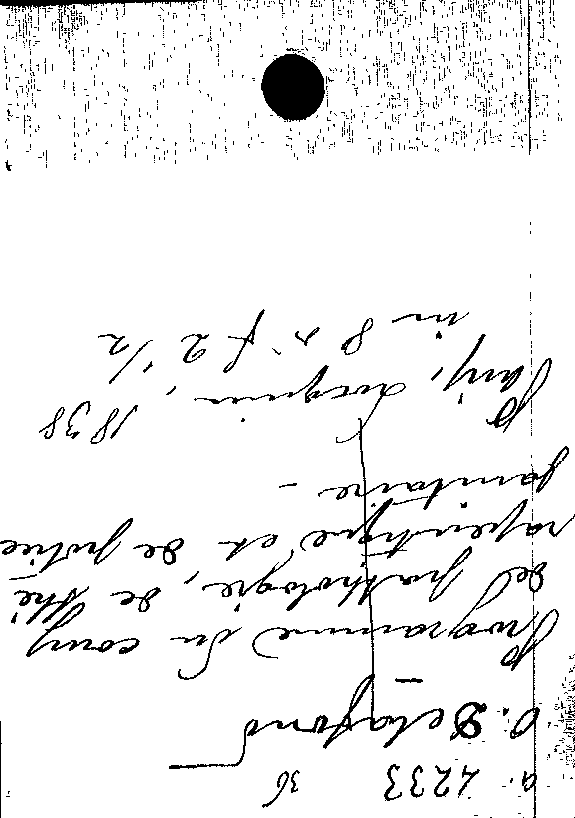 a. 4233 36
O. Delafond
Programme du cours
de pathologie, de thé
rapeutique et de police
sanitaire –
Paris, Locquin, 1838
in 8° f 2 1/2